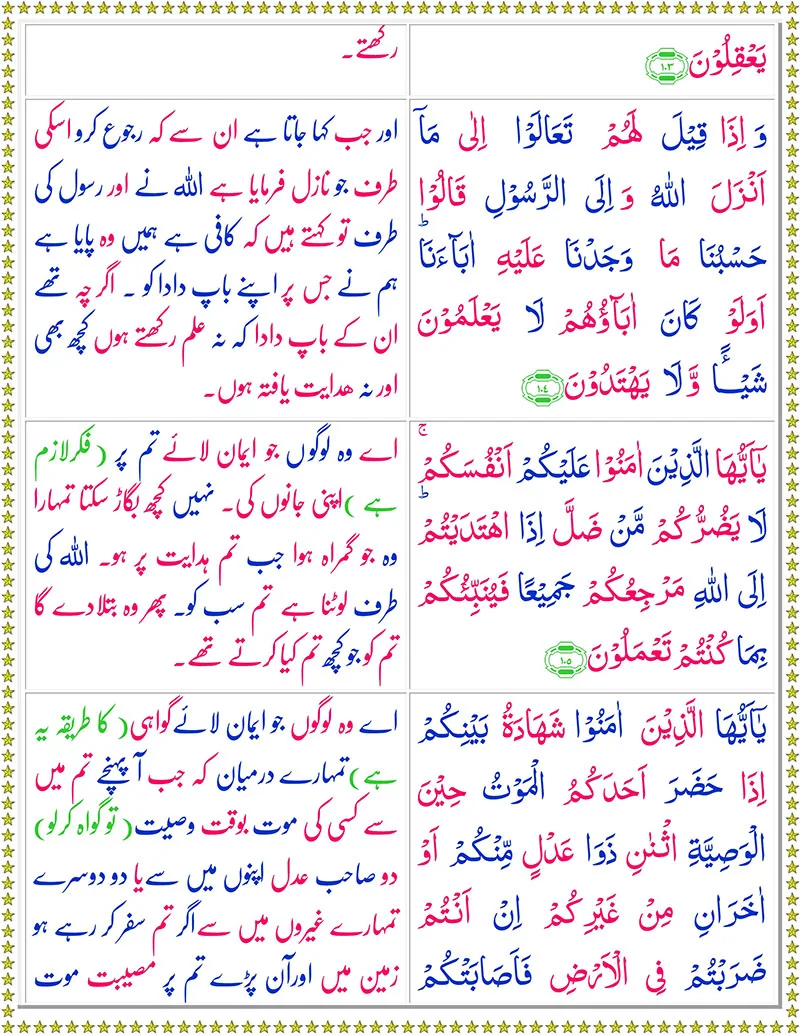 يَعۡقِلُوۡنَ ١٠٣
رکھتے۔
وَ اِذَا قِيۡلَ لَهُمۡ تَعَالَوۡا اِلٰى مَاۤ
اَنۡزَلَ اللّٰهُ وَ اِلَى الرَّسُوۡلِ قَالُوۡا
حَسۡبُنَا مَا وَجَدۡنَا عَلَيۡهِ اٰبَآءَنَاؕ
اَوَلَوۡ كَانَ اٰبَآؤُهُمۡ لَا يَعۡلَمُوۡنَ
شَيۡـًٔـا وَّلَا يَهۡتَدُوۡنَ ١٠٤
اور جب کہا جاتا ہے ان سے کہ رجوع کرو اسکی
طرف جو نازل فرمایا ہے اللہ نے اور رسول کی
طرف تو کہتے ہیں کہ کافی ہے ہمیں وہ پایا ہے
ہم نے جس پر اپنے باپ دادا کو ۔ اگر چہ تھے
ان کے باپ دادا کہ نہ علم رکھتے ہوں کچھ بھی
اور نہ ھدایت یافتہ ہوں۔
يٰۤاَيُّهَا الَّذِيۡنَ اٰمَنُوۡا عَلَيۡكُمۡ اَنۡفُسَكُمۡ‌ۚ
لَا يَضُرُّكُمۡ مَّنۡ ضَلَّ اِذَا اهۡتَدَيۡتُمۡ‌ؕ
اِلَى اللّٰهِ مَرۡجِعُكُمۡ جَمِيۡعًا فَيُنَبِّئُكُمۡ
بِمَا كُنۡتُمۡ تَعۡمَلُوۡنَ ١٠٥
اے وہ لوگوں جو ایمان لائے تم پر (فکر لازم
ہے) اپنی جانوں کی۔ نہیں کچھ بگاڑ سکتا تمہارا
وہ جو گمراہ ہوا جب تم ہدایت پر ہو۔ اللہ کی
طرف لوٹنا ہے تم سب کو۔ پھر وہ بتلا دے گا
تم کو جو کچھ تم کیا کرتے تھے۔
يٰۤاَيُّهَا الَّذِيۡنَ اٰمَنُوۡا شَهَادَةُ بَيۡنِكُمۡ
اِذَا حَضَرَ اَحَدَكُمُ الۡمَوۡتُ حِيۡنَ
الۡوَصِيَّةِ اثۡنٰنِ ذَوَا عَدۡلٍ مِّنۡكُمۡ اَوۡ
اٰخَرَانِ مِنۡ غَيۡرِكُمۡ اِنۡ اَنۡتُمۡ
ضَرَبۡتُمۡ فِى الۡاَرۡضِ فَاَصَابَتۡكُمۡ
اے وہ لوگوں جو ایمان لائے گواہی (کا طریقہ یہ
ہے) تمہارے درمیان کہ جب آ پہنچے تم میں
سے کسی کی موت بوقت وصیت (تو گواہ کرلو)
دو صاحب عدل اپنوں میں سے یا دو دوسرے
تمہارے غیروں میں سے اگر تم سفر کر رہے ہو
زمین میں اور آن پڑے تم پر مصیبت موت